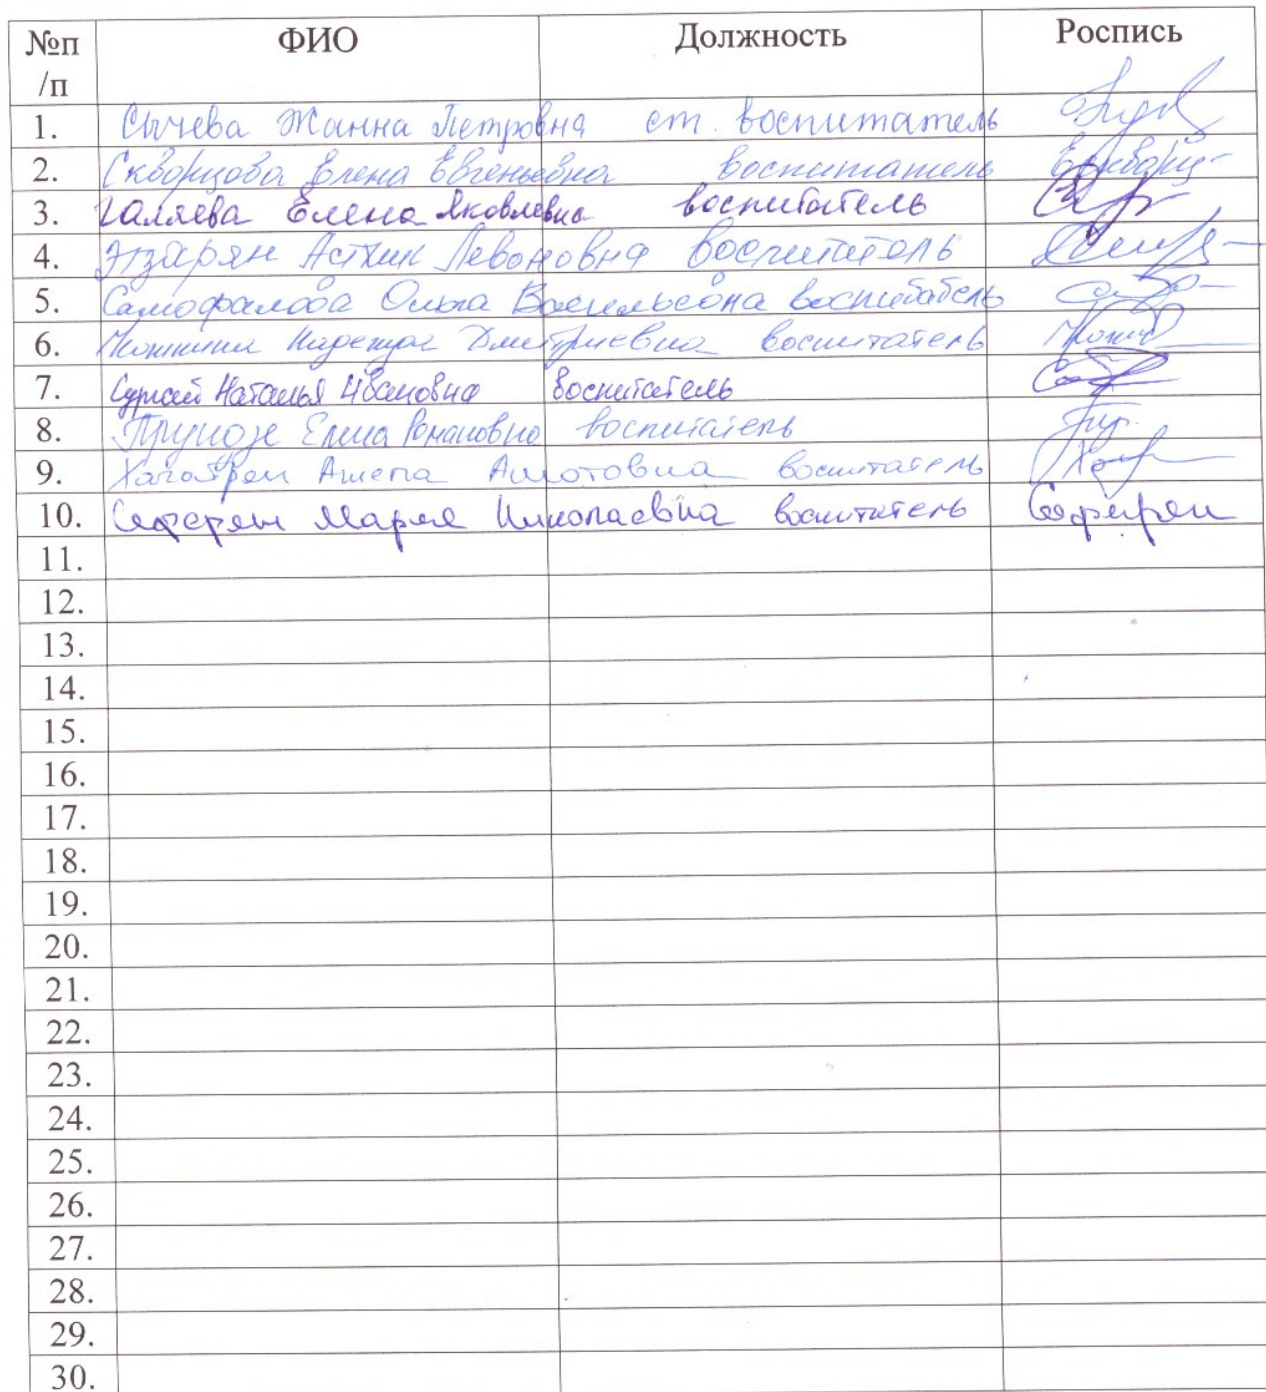 №п/п ФИО Должность Роспись
1. Сычева Жанна Петровна ст. воспитатель
2. Скворцова Елена Евгеньевна воспитатель
3. Галяева Елена Яковлевна воспитатель
4. Эгзарян Астхик Левоновна воспитатель
5. Самофалова Ольга Васильевна воспитатель
6. Надежда Дмитриевна воспитатель
7. Наталья Ивановна воспитатель
8. Елена Романовна воспитатель
9. Ашотовна воспитатель
10. Сеферян Мария Николаевна воспитатель Сеферян
11.
12.
13.
14.
15.
16.
17.
18.
19.
20.
21.
22.
23.
24.
25.
26.
27.
28.
29.
30.